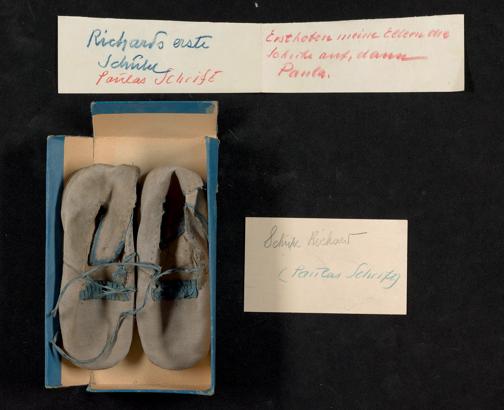 Richards erste
Schuhe
Paulas Schrift
Erst hoben meine Eltern die
Schuhe auf, dann
Paula.
Schuhe Richard
(Paulas Schrift)